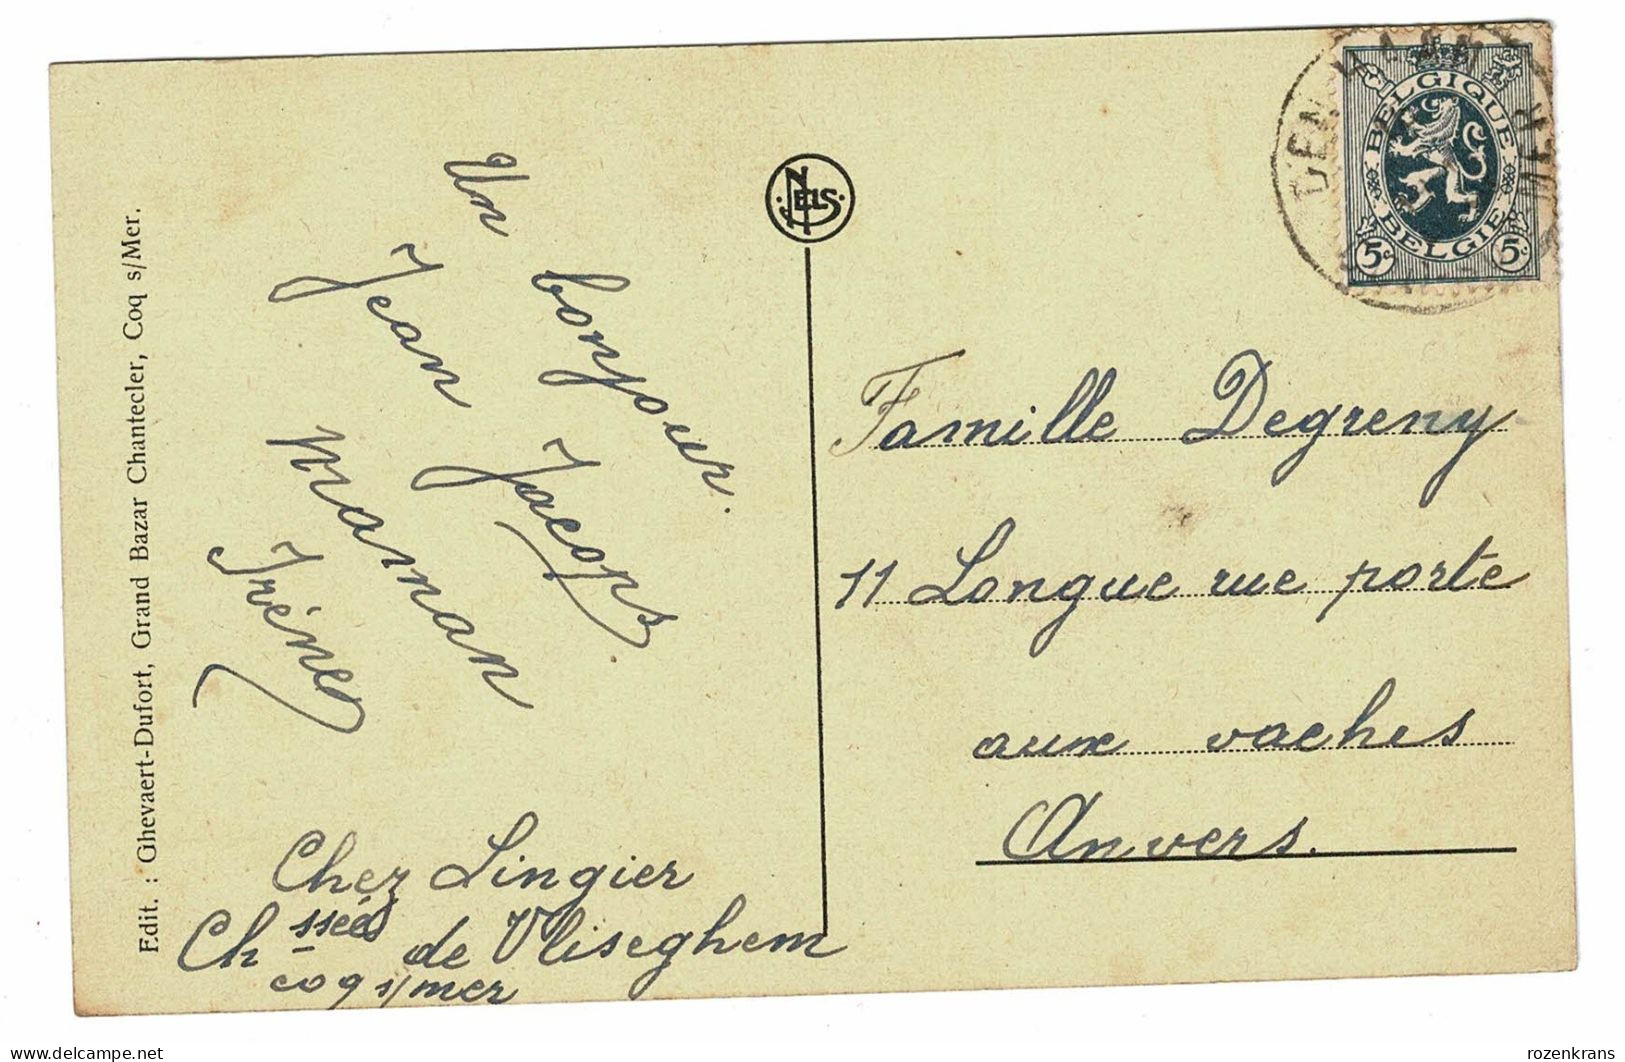 Edit. : Ghevaert-Dufort, Grand Bazar Chantecler, Coq s/Mer.
Un bonjour.
Jean Jacops
Maman
Irénée
Chez Lingier
Chssée de Vliseghem
coq s/mer
NELS
BELGIQUE
BELGIE
5c 5c
DEN HAAN
MER
Famille Degreny
11 Longue rue porte
aux vaches
Anvers.
delcampe.net
rozenkrans